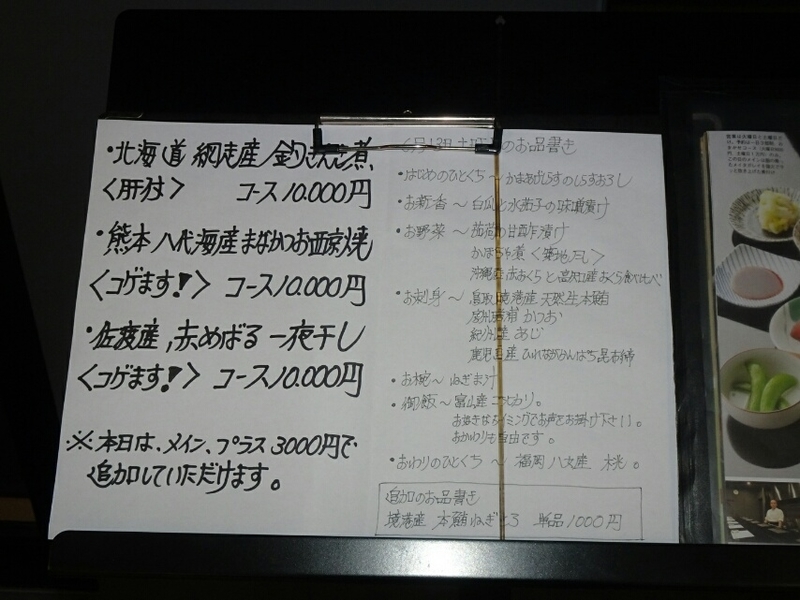 ・北海道 網走産 釣きんき煮
〈肝付〉 コース10.000円
・熊本 八代海産まなかつお西京焼
〈コゲます!〉 コース10.000円
・佐渡産,赤めばる 一夜干し
〈コゲます!〉 コース10.000円
※本日は、メイン、プラス3000円で
追加していただけます。
のお品書き
・はじめのひとくち～かまあげしらすのしらすおろし
・お新香～白瓜と水茄子の味噌漬け
・お野菜～茗荷の甘酢漬け
かぼちゃ煮〈築地干し〉
沖縄産赤おくらと富沢山産おくら食べ比べ
・お刺身～鳥取境港産 天然生本鮪
かつお
紀州産 あじ
鹿児島産 ひれながかんぱち昆布締
・お椀～ねぎま汁
・御飯～富山産こだわり。
お好きなタイミングでお声をお掛け下さい。
おかわりも自由です。
・おわりのひとくち～福岡 八女産 桃。
追加のお品書き
境港産 本鮪ねぎとろ 単品1000円